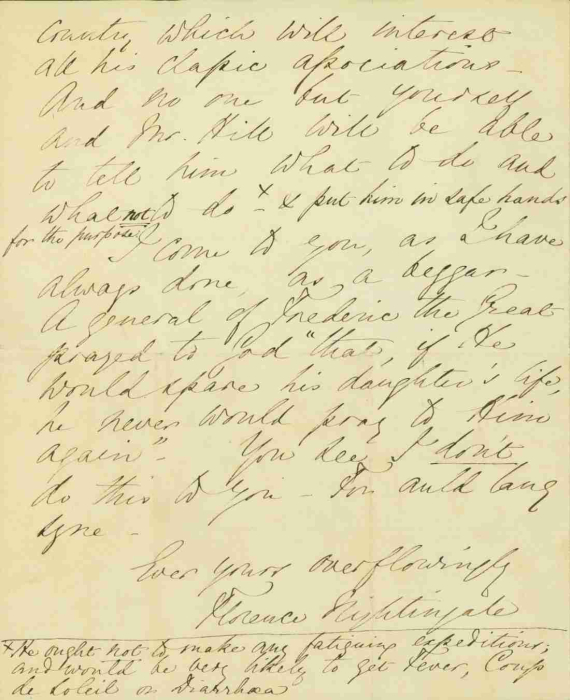 country, which will interest
all his classic associations -
And no one but yourself
and Mr. Hill will be able
to tell him what to do and
what not to do x - & put him in safe hands
for the purpose. I come to you, as I have
always done, as a beggar -
A general of Frederic the Great
prayed to God "that, if He
would spare his daughter's life,
he never would pray to Him
again" - You see I don't
do this to you - For auld lang
syne -
Ever yours overflowingly
Florence Nightingale
x He ought not to make any fatiguing expeditions;
and would be very likely to get Fever, Coup
de soleil or Diarrhoea